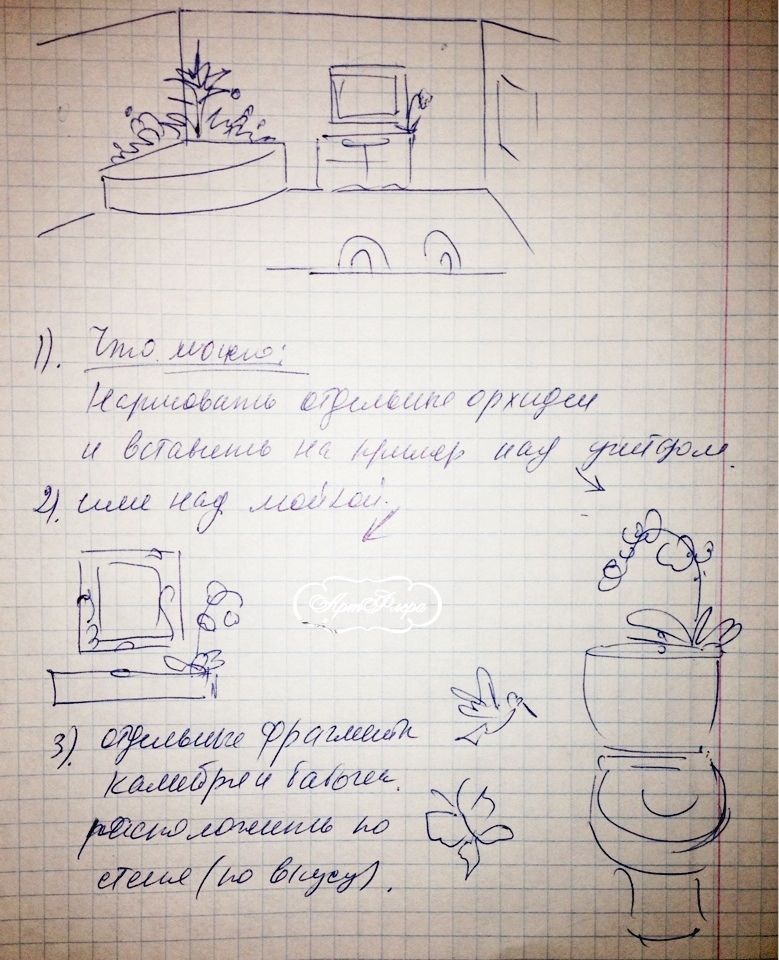 1). Что можно:
Нарисовать отдельные орхидеи
и вставить на пример над унитазом.
2). или над мойкой.
АртФлора
3). отдельные фрагменты
калибри и бабочек.
расположить по
стене (по вкусу).